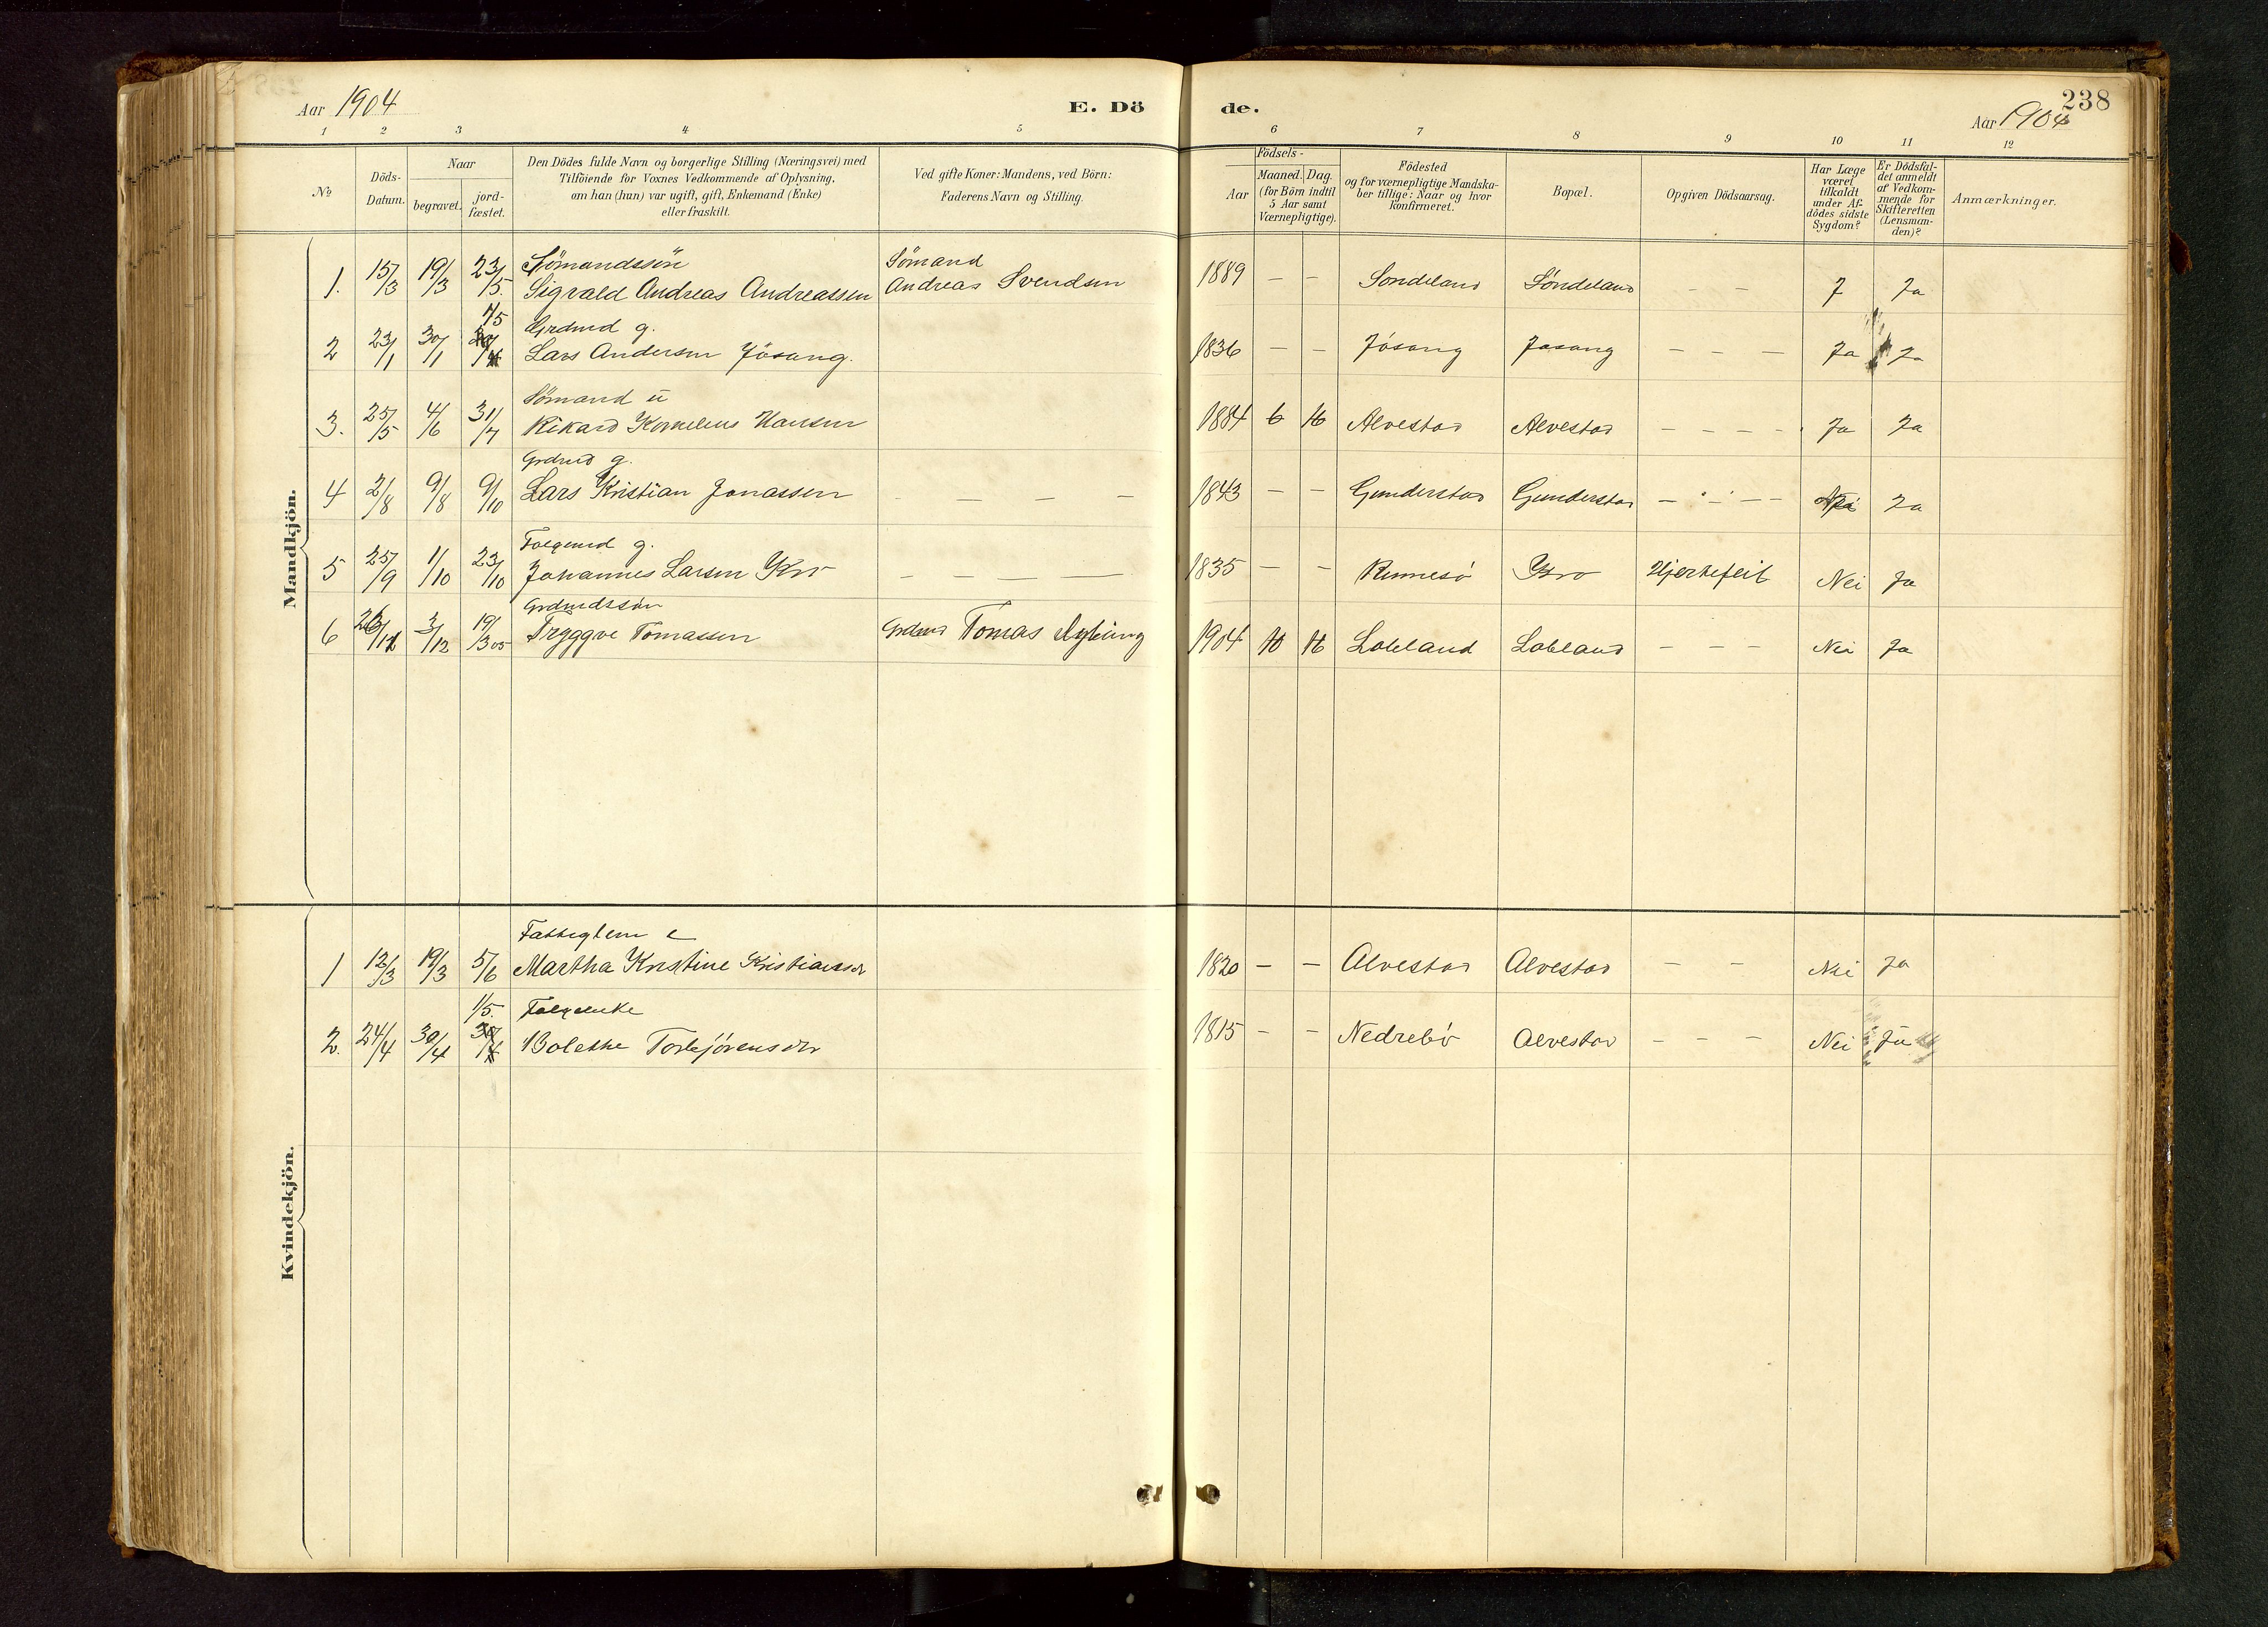 Aar 1904
E. Dö
de.
238
Aar 1904
1 2 3 4 5 6 7 8 9 10 11 12
No
Döds-Datum.
Naar
begravet.
jord-fæstet.
Den Dödes fulde Navn og borgerlige Stilling (Næringsvei) med
Tilföiende for Voxnes Vedkommende af Oplysning,
om han (hun) var ugift, gift, Enkemand (Enke)
eller fraskilt.
Ved gifte Koner: Mandens, ved Börn:
Faderens Navn og Stilling.
Födsels-
Aar
Maaned. Dag.
(for Börn indtil
5 Aar samt
Værnepligtige).
Födested
og for værnepligtige Mandska-
ber tillige: Naar og hvor
konfirmeret.
Bopæl.
Opgiven Dödsaarsag.
Har Læge
været
tilkaldt
under Af-
dödes sidste
Sygdom?
Er Dödsfal-
det anmeldt
af Vedkom-
mende for
Skifteretten
(Lensman-
den)?
Anmærkninger.
Mandkjön.
Sömandssön Sömand
1. 15/3 19/3 23/5 Sigvald Andreas Andreassen Andreas Svendsen 1889 - - Sondeland Söndeland - - J Ja
1/5 Grdmd g.
2 23/1 30/1 Lars Andersen Jösang. 1836 - - Jösang Jøsang - - - Ja Ja
Sömand u
3. 25/5 4/6 31/7 Rikard Kornelius Hansen 1884 6 16 Alvestad Alvestad - - - - Ja Ja
Grdmd g.
4 2/8 9/8 9/10 Lars Kristian Jonassen - - - - 1843 - - Gunderstad Gunderstad - - - - Nei Ja
Folgemd g.
5 25/9 1/10 23/10 Johannes Larsen Kro - - - 1835 - - Rennesö Kro Hjertefeil Nei Ja
Grdmdssön
6 3/12 19/3 05 Tryggve Tomassen Grdmd Tomas 1904 10 16 Lobland Lobland - - - Nei Ja
Kvindekjön.
Fattiglem e
1 12/3 19/3 5/6 Martha Kristine Kristiansdr 1820 - - Alvestad Alvestad - - Nei Ja
1/5. Folgeenke
2. 24/4 30/4 Bolethe Torbjörensdr 1815 - - Nedrebö Alvestad - - - Nei Ja